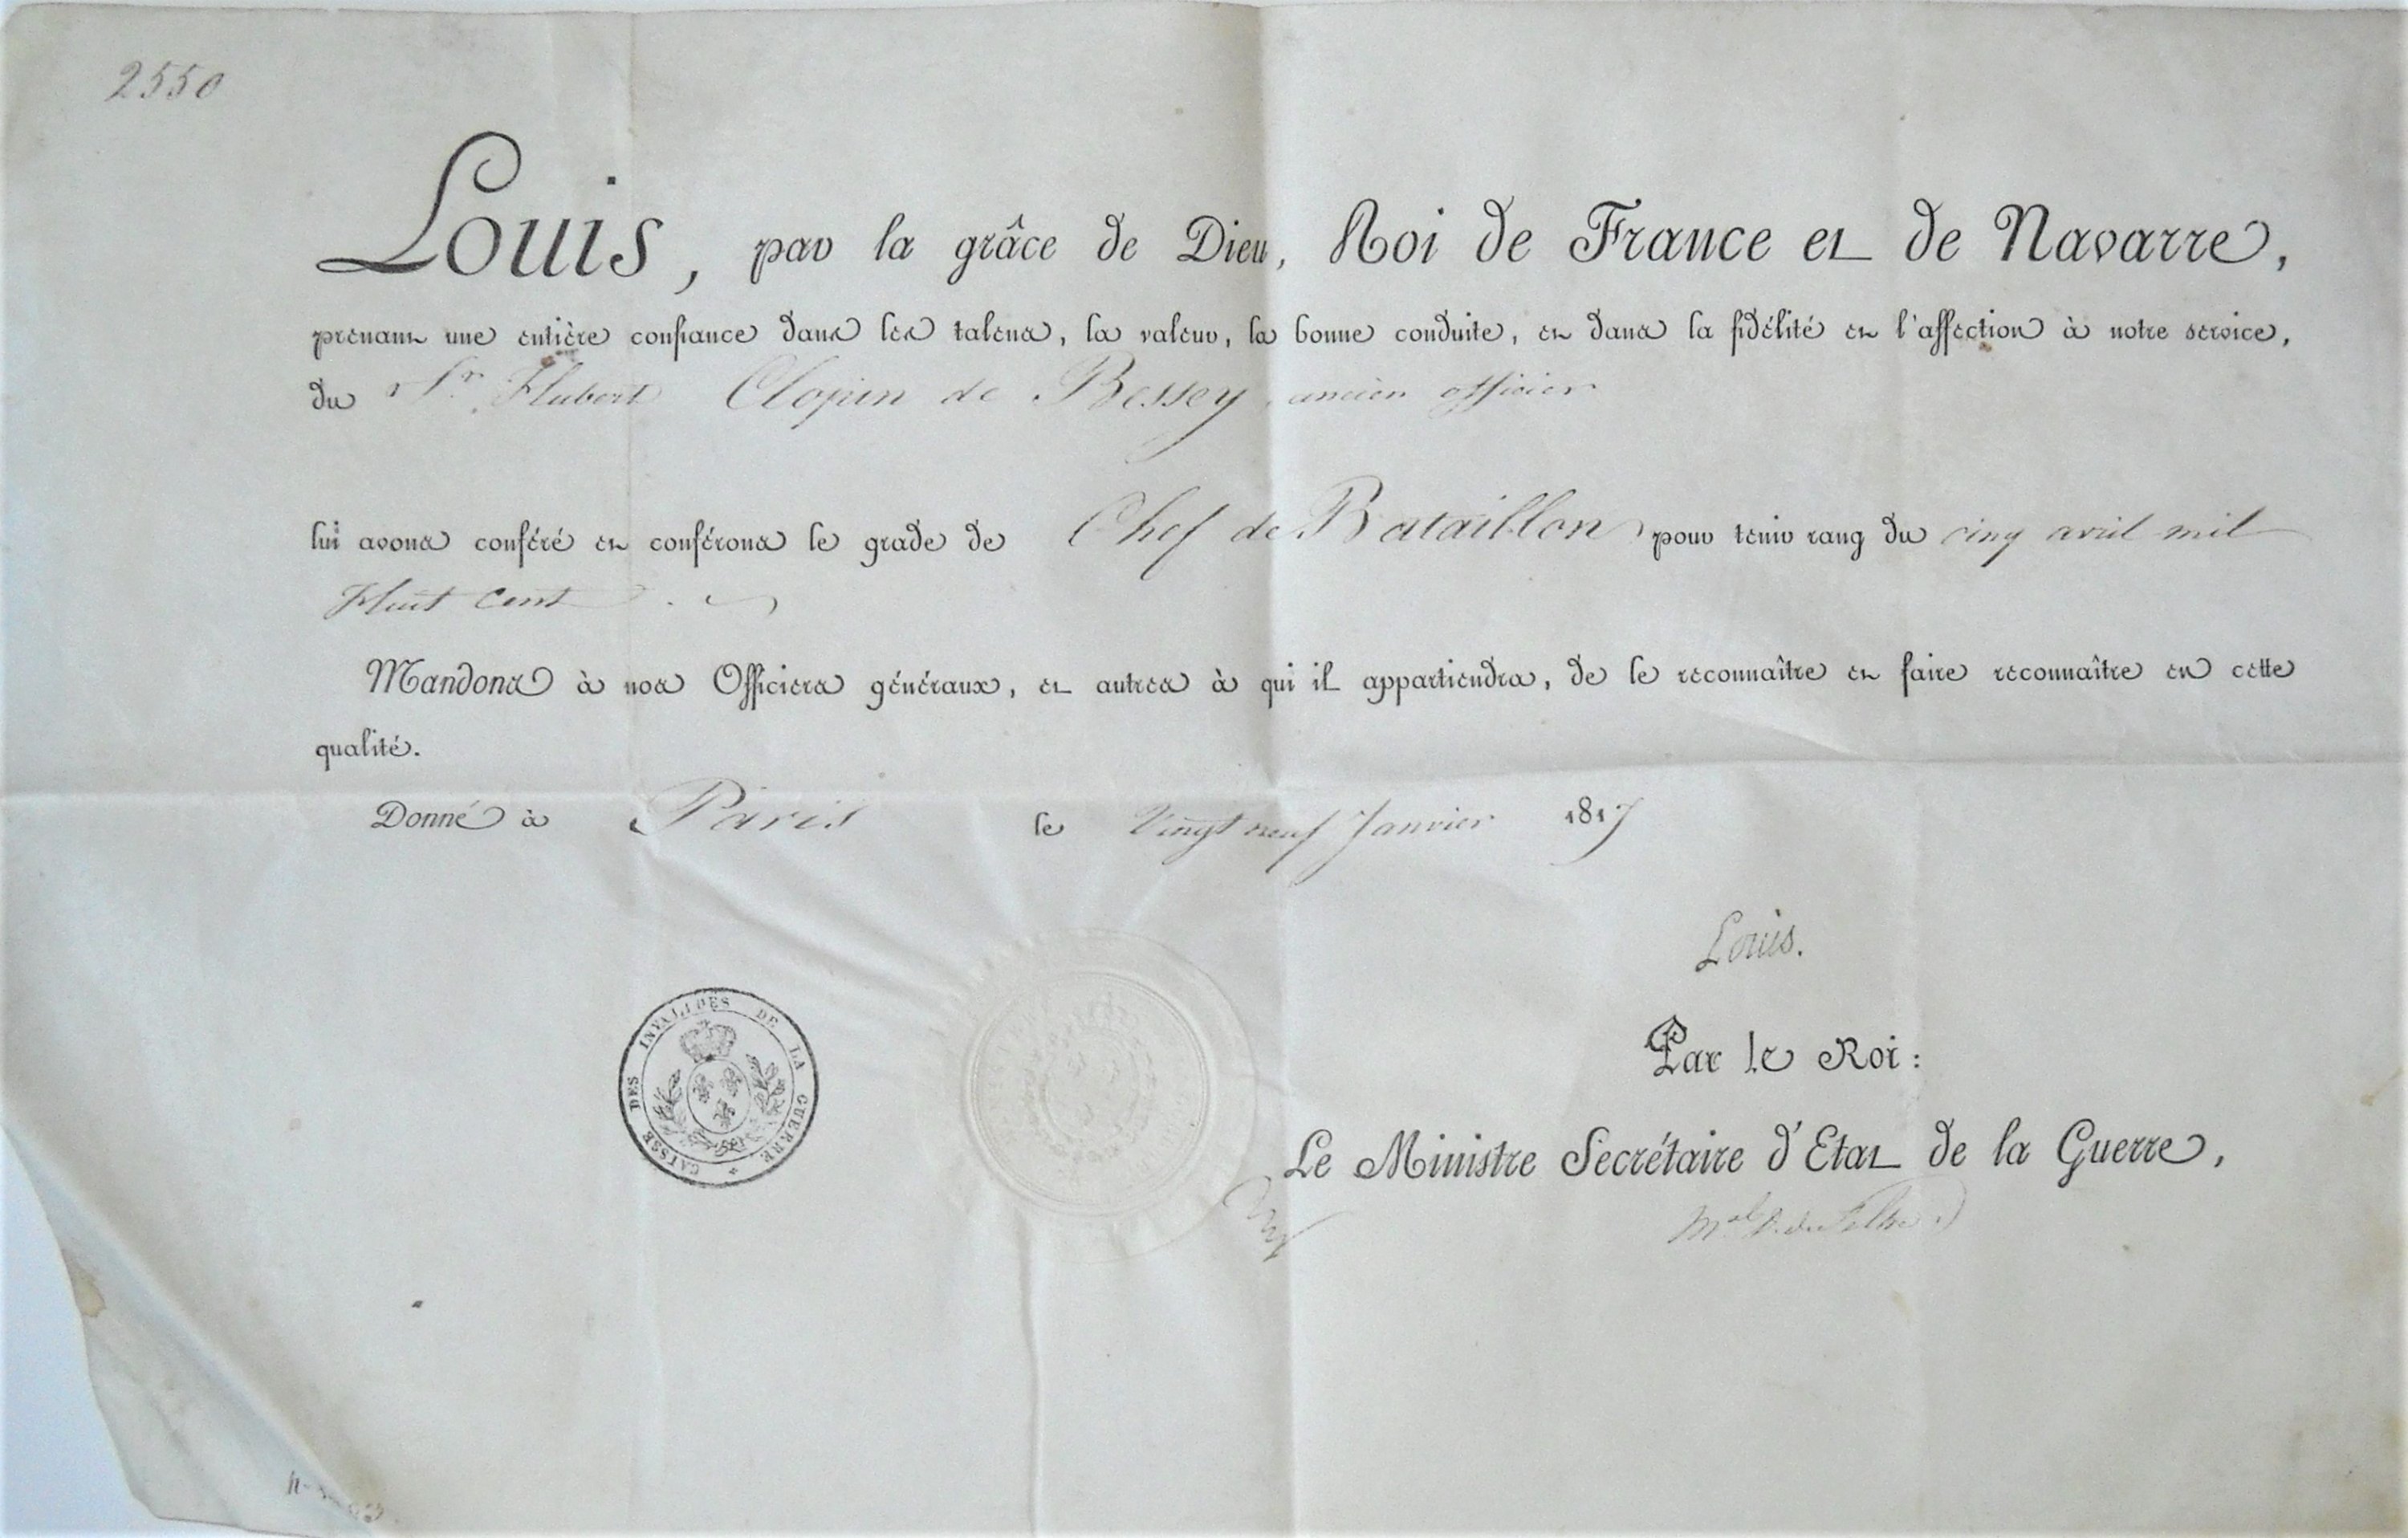 2550
Louis, par la grâce de Dieu, Roi de France et de Navarre,
prenant une entière confiance dans les talens, la valeur, la bonne conduite, et dans la fidélité et l'affection à notre service,
du Sr. Hubert Clopin de Bessey, ancien officier
lui avons conféré et conférons le grade de Chef de Bataillon pour tenir rang du cinq avril mil
Huit cent
Mandons à nos Officiers généraux, et autres à qui il appartiendra, de le reconnaître et faire reconnaître en cette
qualité.
Donné à Paris le Vingt neuf Janvier 1817
Louis.
Par le Roi:
CAISSE DES INVALIDES DE LA GUERRE
Le Ministre Secrétaire d'Etat de la Guerre,
Mal D. de Feltre